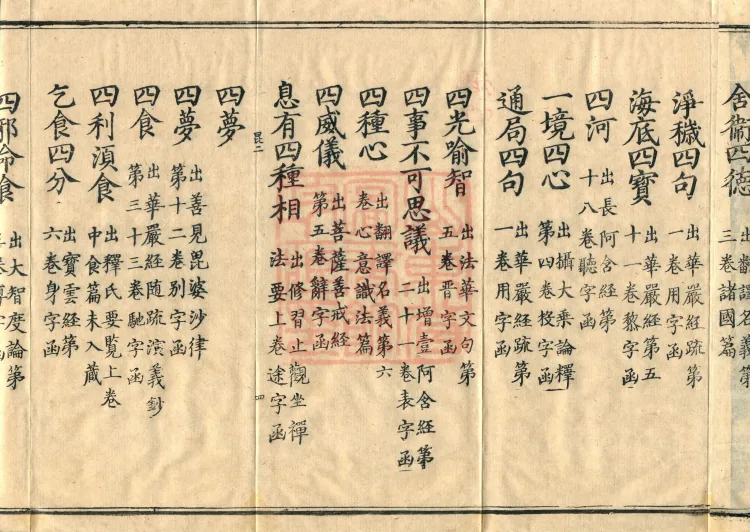 舍衞四德 出翻譯名義第三卷諸國篇
淨穢四句 出華嚴經疏第一卷用字函
海底四寶 出華嚴經第五十一卷黎字函
四河 出長阿含經第十八卷聽字函
一境四心 出攝大乘論釋第四卷枝字函
通局四句 出華嚴經疏第一卷用字函
四光喻智 出法華文句第五卷晋字函
四事不可思議 出增壹阿含經第二十一卷表字函
四種心 出翻譯名義第六卷心意識法篇
四威儀 出菩薩善戒經第五卷辭字函
息有四種相 出修習止觀坐禪法要上卷途字函
昆二
四
四夢
四夢 出善見毘婆沙律第十二卷别字函
四食 出華嚴經随疏演義鈔第三十三卷馳字函
四利湏食 出釋氏要覧上卷中食篇未入藏
乞食四分 出寶雲經第六卷身字函
四邪命食 出大智度論第三卷